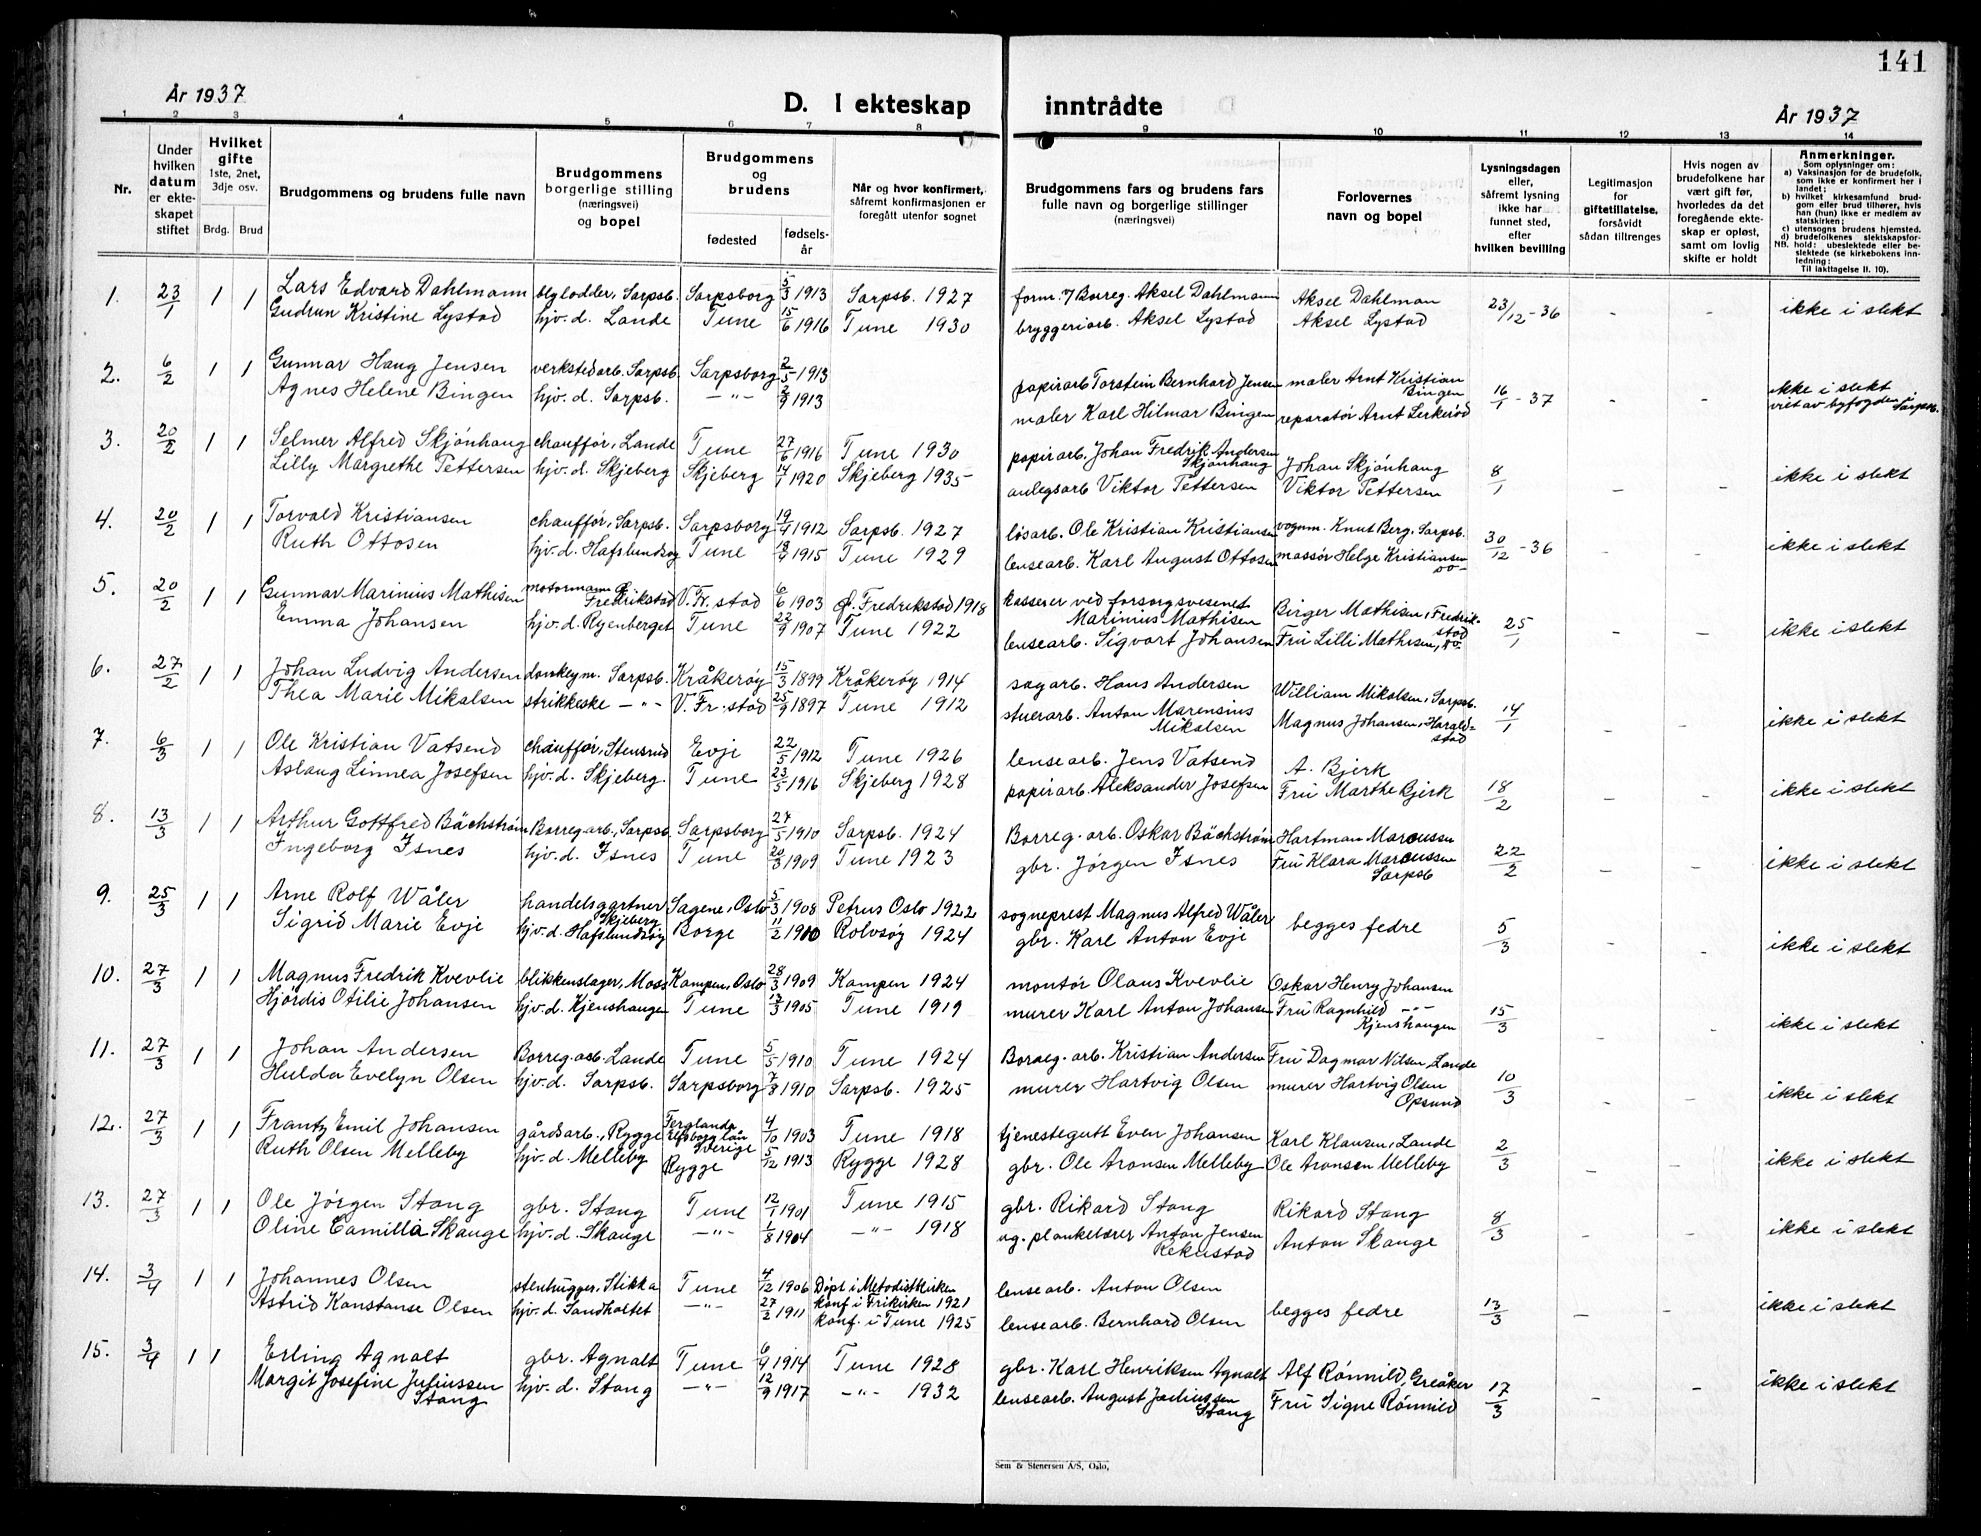 141
År 1937
D. I ekteskap inntrådte
År 1937
1 2 3 4 5 6 7 8 9 10 11 12 13 14
Nr.
Under hvilken datum er ekteskapet stiftet
Hvilket gifte 1ste, 2net, 3dje osv.
Brdg. Brud
Brudgommens og brudens fulle navn
Brudgommens borgerlige stilling (næringsvei) og bopel
Brudgommens og brudens
fødested
fødselsår
Når og hvor konfirmert, såfremt konfirmasjonen er foregått utenfor sognet
Brudgommens fars og brudens fars fulle navn og borgerlige stillinger (næringsvei)
Forlovernes navn og bopel
Lysningsdagen eller, såfremt lysning ikke har funnet sted, efter hvilken bevilling
Legitimasjon for giftetillatelse, forsåvidt sådan tiltrenges
Hvis nogen av brudefolkene har vært gift før, hvorledes da det foregående ekteskap er opløst, samt om lovlig skifte er holdt
Anmerkninger.
Som oplysninger om:
a) Vaksinasjon for de brudefolk, som ikke er konfirmert her i landet;
b) hvilket kirkesamfund brudgom eller brud tilhører, hvis han (hun) ikke er medlem av statskirken;
c) utensogns brudens hjemsted.
d) brudefolkenes slektskapsforhold: ubeslektede eller beslektede (se kirkebokens innledning:
NB.
Til iakttagelse II. 10).
1. 23/1 1 1 Lars Edvard Dahlmann blylodder, Sarpsb. Sarpsborg 5/3 1913 Sarpsb. 1927 form. / Borreg. Aksel Dahlmann Aksel Dahlman 23/12-36 - - ikke i slekt
Gudrun Kristine Lystad hjv. d. Lande Tune 15/6 1916 Tune 1930 bryggeriarb. Aksel Lystad Aksel Lystad
2. 6/2 1 1 Gunnar Haug Jensen verkstedarb. Sarpsb. Sarpsborg 2/5 1913 papirarb Torstein Bernhard Jensen maler Arnt Kristian Bingen 16/1-37 - - ikke i slekt
Agnes Helene Bingen hjv. d. Sarpsb. -"- 2/9 1913 maler Karl Hilmar Bingen reparatør Arnt Lerkerød viet av byfogden i Sarpsb.
3. 20/2 1 1 Selmer Alfred Skjønhaug chauffør, Lande Tune 27/6 1916 Tune 1930 papirarb. Johan Fredrik Andersen Skjønhaug Johan Skjønhaug 8/1 - - ikke i slekt
Lilly Margrethe Pettersen hjv. d. Skjeberg Skjeberg 14/1 1920 Skjeberg 1935 anlegsarb Viktor Pettersen Viktor Pettersen
4. 20/2 1 1 Torvald Kristiansen chauffør, Sarpsb. Sarpsborg 19/9 1912 Sarpsb. 1927 løsarb. Ole Kristian Kristiansen vognm. Knut Berg, Sarpsb. 30/12-36 - - ikke i slekt
Ruth Ottosen hjv. d. Hafslundsøy Tune 18/9 1915 Tune 1929 lensearb. Karl August Ottosen massør Helge Kristiansen do-
5. 20/2 1 1 Gunnar Marinius Mathisen motormann Gl. Fredrikstad V. Fr. stad 6/6 1903 Gl. Fredrikstad 1918 kasserer ved forsorgsvesenet Marinius Mathisen Birger Mathisen, Fredrikstad 25/1 - - ikke i slekt
Emma Johansen hjv. d. Ryenberget Tune 22/9 1907 Tune 1922 lensearb. Sigvart Johansen Fru Lilli Mathisen, do-
6. 27/2 1 1 Johan Ludvig Andersen donkeym. Sarpsb. Kråkerøy 15/3 1899 Kråkerøy 1914 sagarb. Hans Andersen William Mikalsen, Sarpsb. 14/1 - - ikke i slekt
Thea Marie Mikalsen strikkeske -"- V. Fr. stad 25/9 1897 Tune 1912 stuerarb. Anton Marensius Mikalsen Magnus Johansen, Haraldstad
7. 6/3 1 1 Ole Kristian Vatsend chauffør, Stensrud Evje 22/5 1912 Tune 1926 lensearb. Jens Vatsend A. Bjerk 18/2 - - ikke i slekt
Aslaug Linnea Josefsen hjv. d. Skjeberg. Tune 23/5 1916 Skjeberg 1928 papirarb. Aleksander Josefsen Fru Marthe Bjerk
8. 13/3 1 1 Arthur Gottfred Bächstrøm Borreg. arb., Sarpsb. Sarpsborg 27/5 1910 Sarpsb. 1924 Borreg. arb. Oskar Bächstrøm Hartman Marcussen 22/2 - - ikke i slekt
Ingeborg Isnes hjv. d. Isnes Tune 20/3 1909 Tune 1923 gbr. Jørgen Isnes Fru Klara Marcussen Sarpsb
9. 25/3 1 1 Arne Rolf Wåler handelsgartner Skjeberg Sagene, Oslo 5/3 1908 Petrus Oslo 1922 sogneprest Magnus Alfred Wåler begges fedre 5/3 - - ikke i slekt
Sigrid Marie Evje hjv. d. Hafslundsøy Borge 11/2 1910 Rolvsøy 1924 gbr. Karl Anton Evje
10. 27/3 1 1 Magnus Fredrik Kvevlie blikkenslager, Moss Kampen, Oslo 28/3 1909 Kampen 1924 montør Olaus Kvevlie Oskar Henry Johansen 15/3 - - ikke i slekt
Hjørdis Otilie Johansen hjv. d. Kjenshaugen Tune 13/3 1905 Tune 1919 murer Karl Anton Johansen Fru Ragnhild -"- Kjenshaugen
11. 27/3 1 1 Johan Andersen Borreg. arb. Lande Tune 5/5 1910 Tune 1924 Borreg. arb. Kristian Andersen Fru Dagmar Nilsen, Lande 10/3 - - ikke i slekt
Hulda Evelyn Olsen hjv. d. Sarpsb. Sarpsborg 7/8 1910 Sarpsb. 1925 murer Hartvig Olsen murer Hartvig Olsen Opsund
12. 27/3 1 1 Frantz Emil Johansen gårdsarb., Rygge Ferglanda Elfsborg län Sverige 4/10 1903 Tune 1918 tjenestegutt Even Johansen Karl Klausen, Lande 2/3 - - ikke i slekt
Ruth Olsen Melleby hjv. d. Melleby Rygge 5/12 1913 Rygge 1928 gbr. Ole Aronsen Melleby Ole Aronsen Melleby
13. 27/3 1 1 Ole Jørgen Stang gbr. Stang Tune 12/1 1901 Tune 1915 gbr. Rikard Stang Rikard Stang 8/3 - - ikke i slekt
Oline Camilla Skauge hjv. d. Skauge -"- 1/8 1904 -"- 1918 ug. plankebærer Anton Jensen Rekustad Anton Skauge
14. 3/4 1 1 Johannes Olsen stenhugger, Stikka Tune 4/12 1906 Døpt i Metodistkirken konf i Frikirken 1921 lensearb. Anton Olsen begges fedre 13/3 - - ikke i slekt
Astrid Konstanse Olsen hjv. d. Sandholtet -"- 27/2 1911 konf. i Tune 1925 lensearb. Bernhard Olsen
15. 3/4 1 1 Erling Agnalt gbr. Agnalt Tune 6/9 1914 Tune 1928 gbr. Karl Henriksen Agnalt Alf Rønnild, Greåker 17/3 - - ikke i slekt
Margit Josefine Juliussen Stang hjv. d. Stang -"- 12/9 1917 -"- 1932 lensearb. August Juliussen Stang Fru Signe Rønnild
Sem & Stenersen A/S, Oslo.